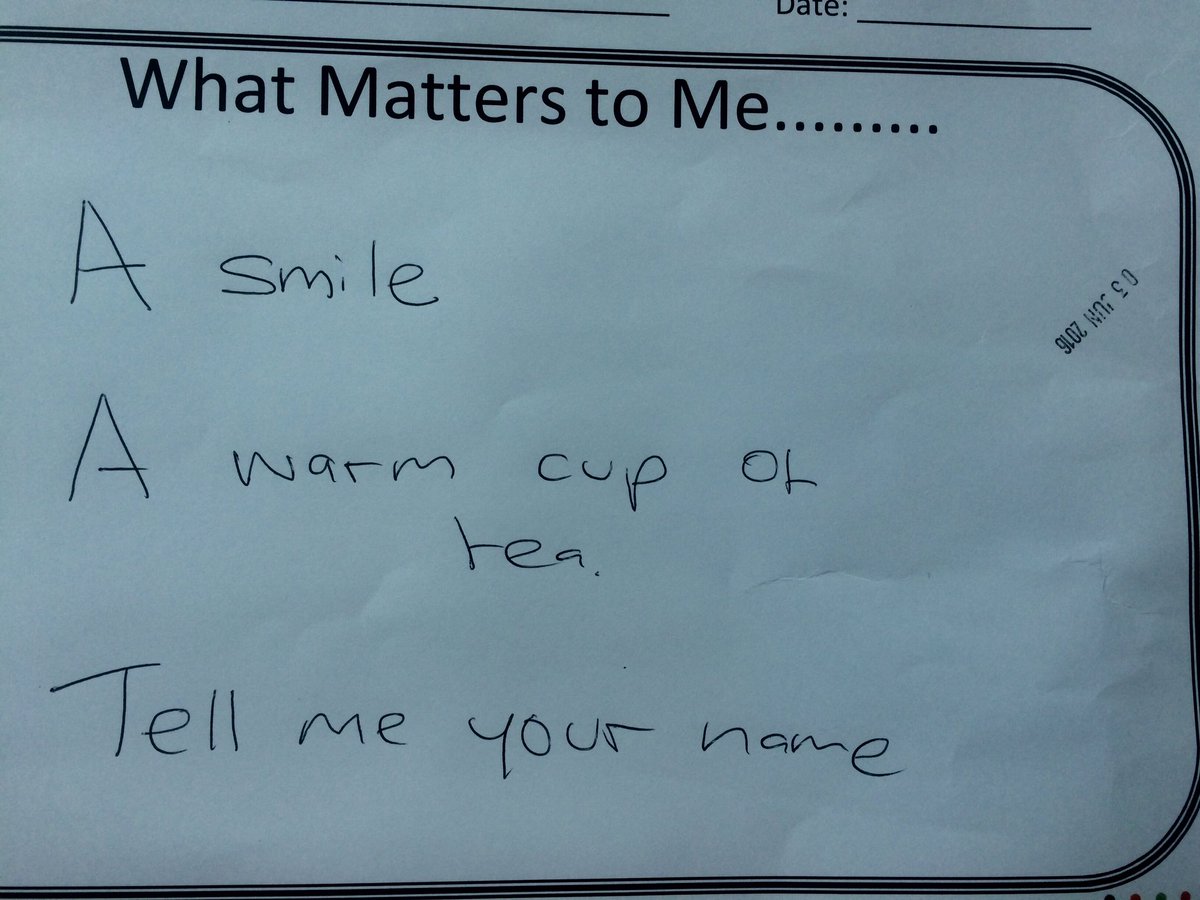 Date:
What Matters to Me.........
A smile
03 JUN 2016
A warm cup of
tea.
Tell me your name